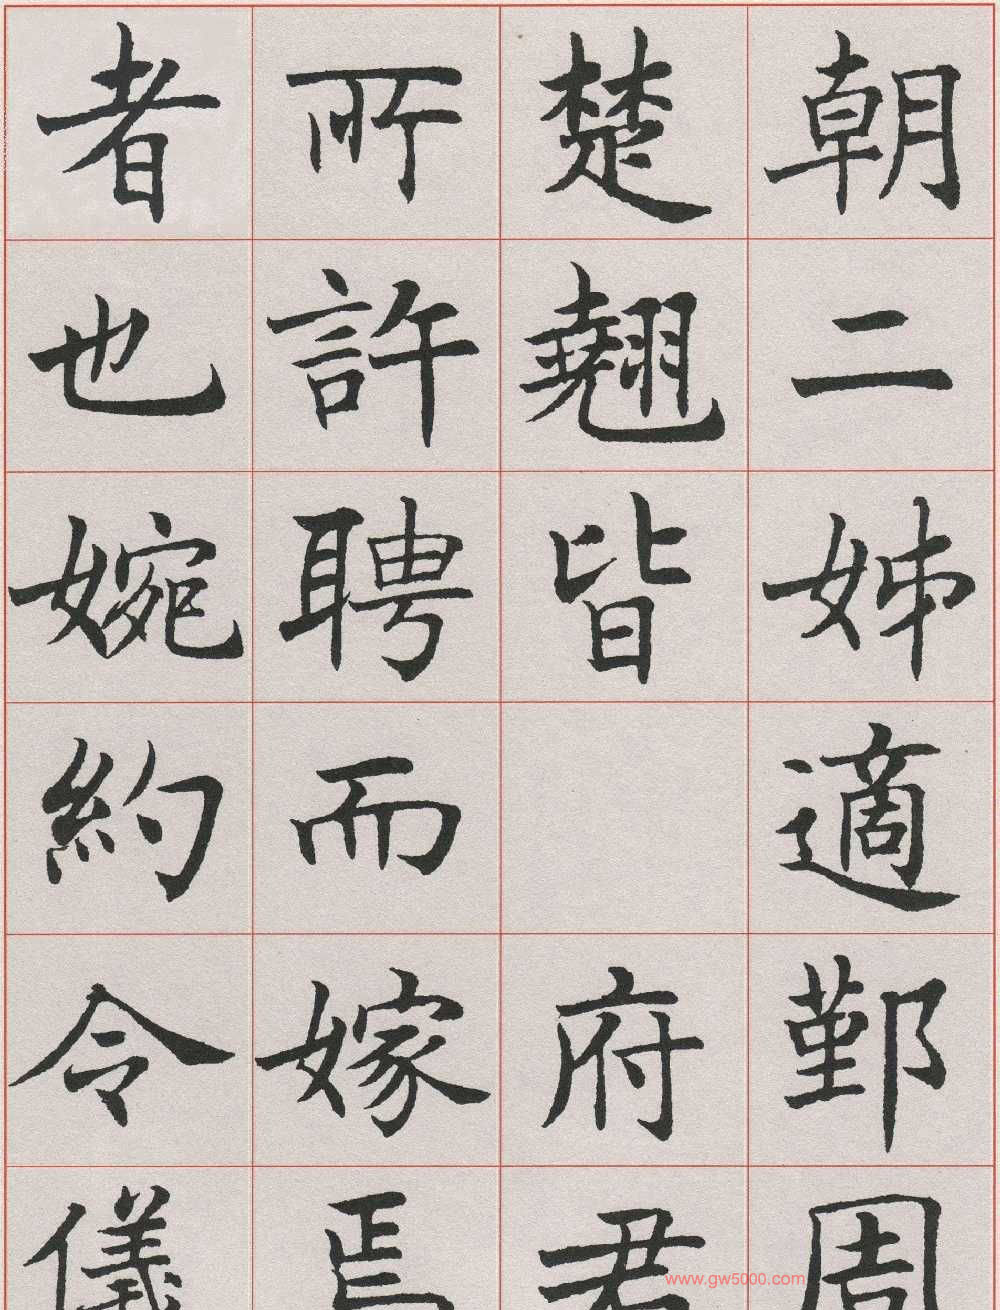 朝二姊適鄞周
楚翹皆 府君
所許聘而嫁焉
者也婉約令儀
www.gw5000.com